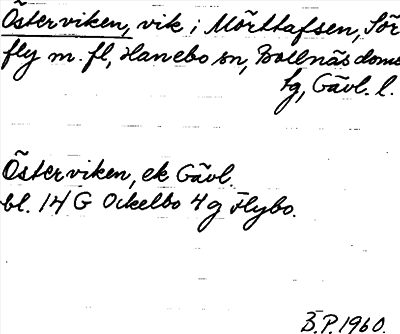 Österviken, vik i Mörttafsen, Sör
fly m. fl, Hanebo sn, Bollnäs doms
hg, Gävl. l.
Österviken, ek Gävl.
bl. 14 G Ockelbo 4 g Flybo.
B.P. 1960.